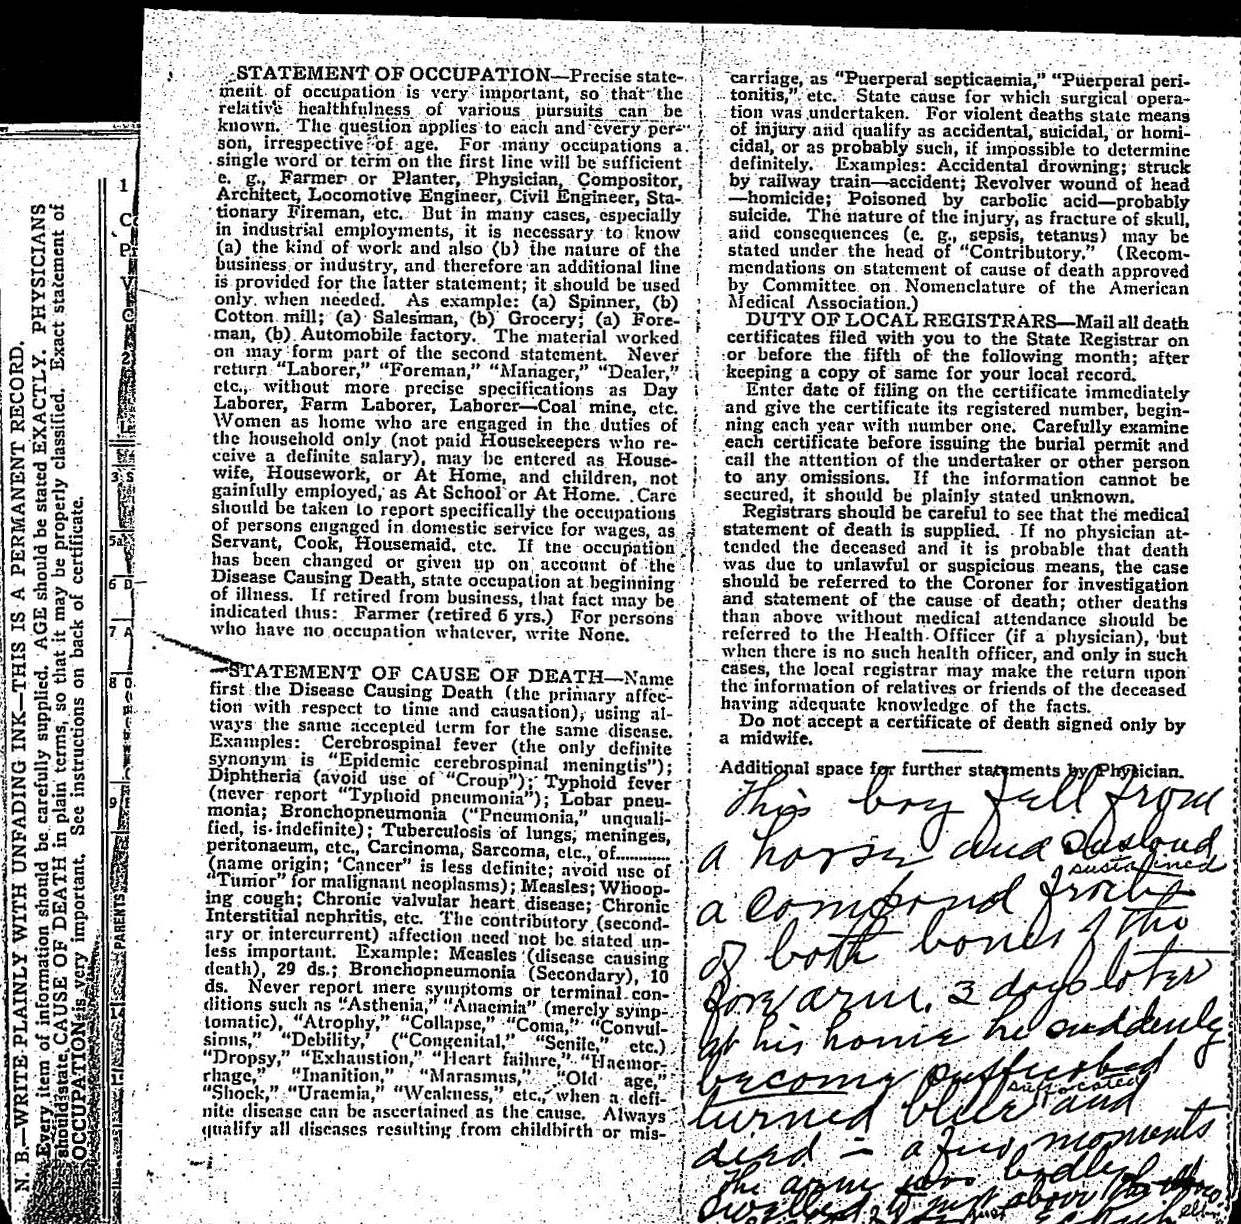 N. B.—WRITE PLAINLY WITH UNFADING INK—THIS IS A PERMANENT RECORD.
Every item of information should be carefully supplied. AGE should be stated EXACTLY. PHYSICIANS
should state CAUSE OF DEATH in plain terms, so that it may be properly classified. Exact statement of
OCCUPATION is very important. See instructions on back of certificate.
1
2
3 S
5a
6 D
7 A
8
9
PARENTS
14
STATEMENT OF OCCUPATION—Precise state-
ment of occupation is very important, so that the
relative healthfulness of various pursuits can be
known. The question applies to each and every per-
son, irrespective of age. For many occupations a
single word or term on the first line will be sufficient
e. g., Farmer or Planter, Physician, Compositor,
Architect, Locomotive Engineer, Civil Engineer, Sta-
tionary Fireman, etc. But in many cases, especially
in industrial employments, it is necessary to know
(a) the kind of work and also (b) the nature of the
business or industry, and therefore an additional line
is provided for the latter statement; it should be used
only when needed. As example: (a) Spinner, (b)
Cotton mill; (a) Salesman, (b) Grocery; (a) Fore-
man, (b) Automobile factory. The material worked
on may form part of the second statement. Never
return "Laborer," "Foreman," "Manager," "Dealer,"
etc., without more precise specifications as Day
Laborer, Farm Laborer, Laborer—Coal mine, etc.
Women as home who are engaged in the duties of
the household only (not paid Housekeepers who re-
ceive a definite salary), may be entered as House-
wife, Housework, or At Home, and children, not
gainfully employed, as At School or At Home. Care
should be taken to report specifically the occupations
of persons engaged in domestic service for wages, as
Servant, Cook, Housemaid, etc. If the occupation
has been changed or given up on account of the
Disease Causing Death, state occupation at beginning
of illness. If retired from business, that fact may be
indicated thus: Farmer (retired 6 yrs.) For persons
who have no occupation whatever, write None.
STATEMENT OF CAUSE OF DEATH—Name
first the Disease Causing Death (the primary affec-
tion with respect to time and causation), using al-
ways the same accepted term for the same disease.
Examples: Cerebrospinal fever (the only definite
synonym is "Epidemic cerebrospinal meningtis");
Diphtheria (avoid use of "Croup"); Typhoid fever
(never report "Typhoid pneumonia"); Lobar pneu-
monia; Bronchopneumonia ("Pneumonia," unquali-
fied, is indefinite); Tuberculosis of lungs, meninges,
peritonaeum, etc., Carcinoma, Sarcoma, etc., of............
(name origin; 'Cancer" is less definite; avoid use of
"Tumor" for malignant neoplasms); Measles; Whoop-
ing cough; Chronic valvular heart disease; Chronic
Interstitial nephritis, etc. The contributory (second-
ary or intercurrent) affection need not be stated un-
less important. Example: Measles (disease causing
death), 29 ds.; Bronchopneumonia (Secondary), 10
ds. Never report mere symptoms or terminal con-
ditions such as "Asthenia," "Anaemia" (merely symp-
tomatic), "Atrophy," "Collapse," "Coma," "Convul-
sions," "Debility," ("Congenital," "Senile," etc.)
"Dropsy," "Exhaustion," "Heart failure," "Haemor-
rhage," "Inanition," "Marasmus," "Old age,"
"Shock," "Uraemia," "Weakness," etc., when a defi-
nite disease can be ascertained as the cause. Always
qualify all diseases resulting from childbirth or mis-
carriage, as "Puerperal septicaemia," "Puerperal peri-
tonitis," etc. State cause for which surgical opera-
tion was undertaken. For violent deaths state means
of injury and qualify as accidental, suicidal, or homi-
cidal, or as probably such, if impossible to determine
definitely. Examples: Accidental drowning; struck
by railway train—accident; Revolver wound of head
—homicide; Poisoned by carbolic acid—probably
suicide. The nature of the injury, as fracture of skull,
and consequences (e. g., sepsis, tetanus) may be
stated under the head of "Contributory." (Recom-
mendations on statement of cause of death approved
by Committee on Nomenclature of the American
Medical Association.)
DUTY OF LOCAL REGISTRARS—Mail all death
certificates filed with you to the State Registrar on
or before the fifth of the following month; after
keeping a copy of same for your local record.
Enter date of filing on the certificate immediately
and give the certificate its registered number, begin-
ning each year with number one. Carefully examine
each certificate before issuing the burial permit and
call the attention of the undertaker or other person
to any omissions. If the information cannot be
secured, it should be plainly stated unknown.
Registrars should be careful to see that the medical
statement of death is supplied. If no physician at-
tended the deceased and it is probable that death
was due to unlawful or suspicious means, the case
should be referred to the Coroner for investigation
and statement of the cause of death; other deaths
than above without medical attendance should be
referred to the Health Officer (if a physician), but
when there is no such health officer, and only in such
cases, the local registrar may make the return upon
the information of relatives or friends of the deceased
having adequate knowledge of the facts.
Do not accept a certificate of death signed only by
a midwife.
Additional space for further statements by Physician.
This boy fell from
a horse and
sustained
a compound
of both bones of the
forearm. 3 days later
at his home he suddenly
become
suffocated
turned blue and
died – a few moments
The arm was badly
swelled to just above the